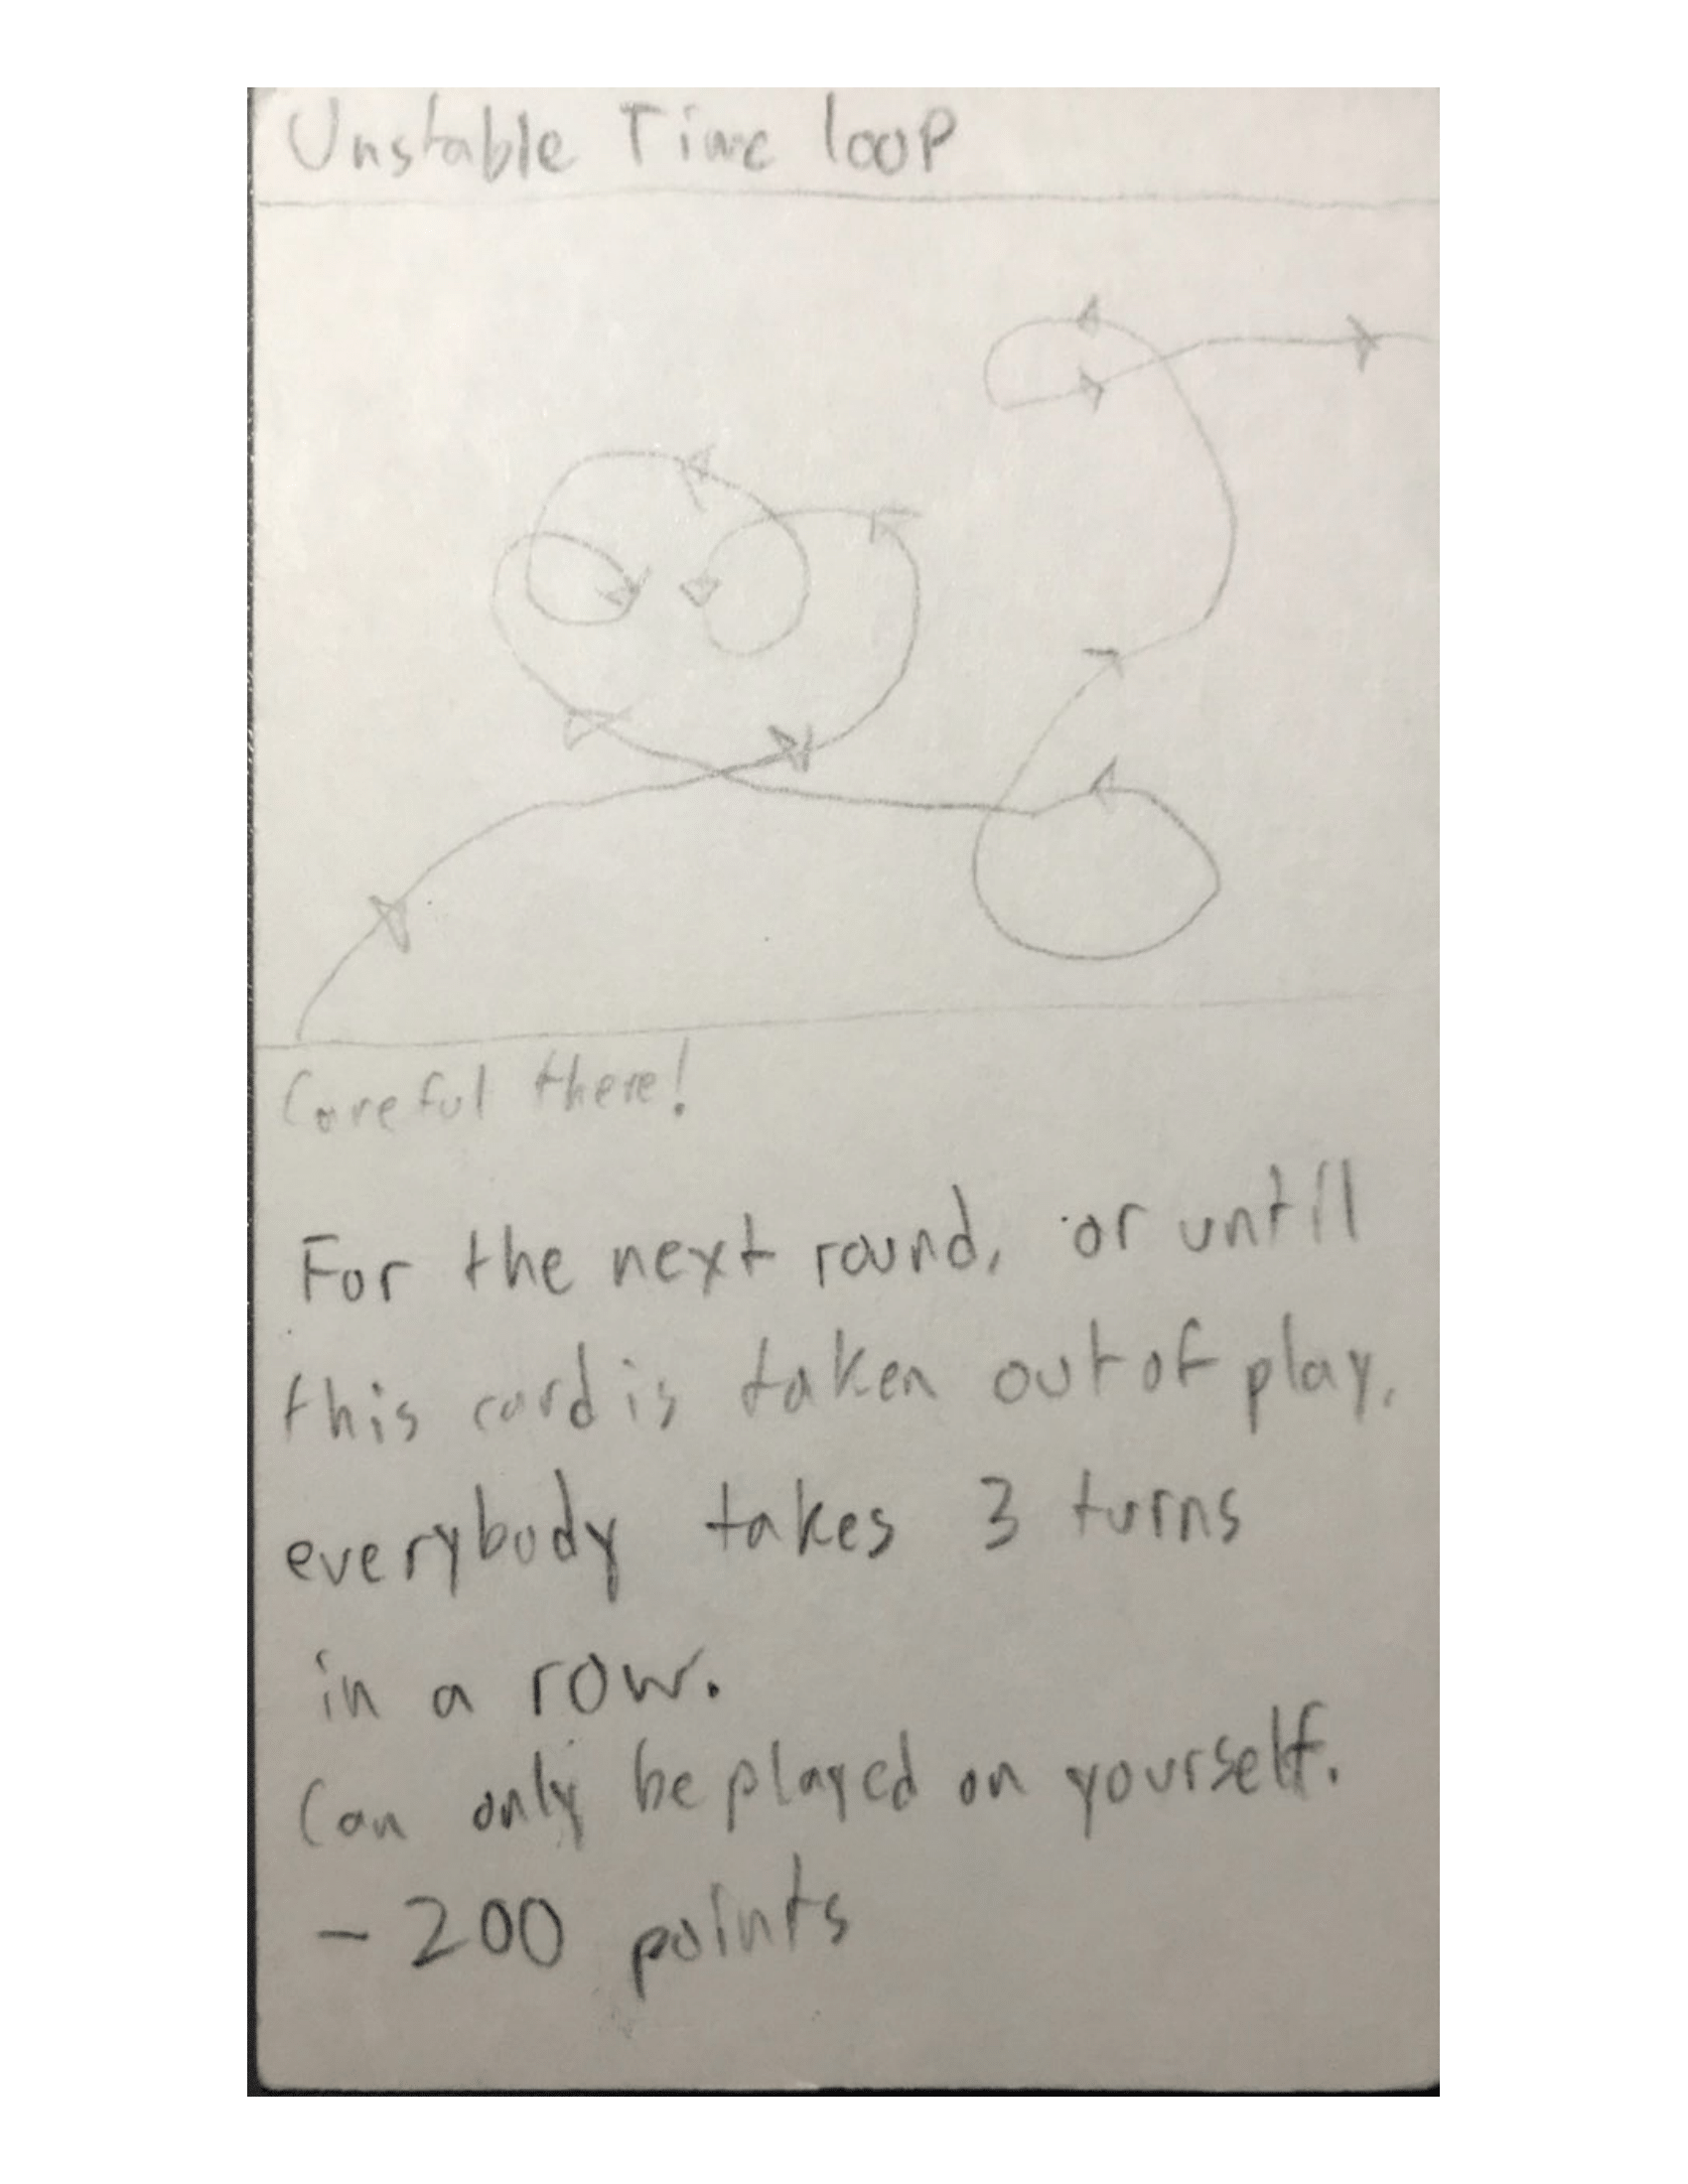 Unstable Time loop
Careful there!
For the next round, or untill
this card is taken out of play,
everybody takes 3 turns
in a row.
Can only be played on yourself.
- 200 points